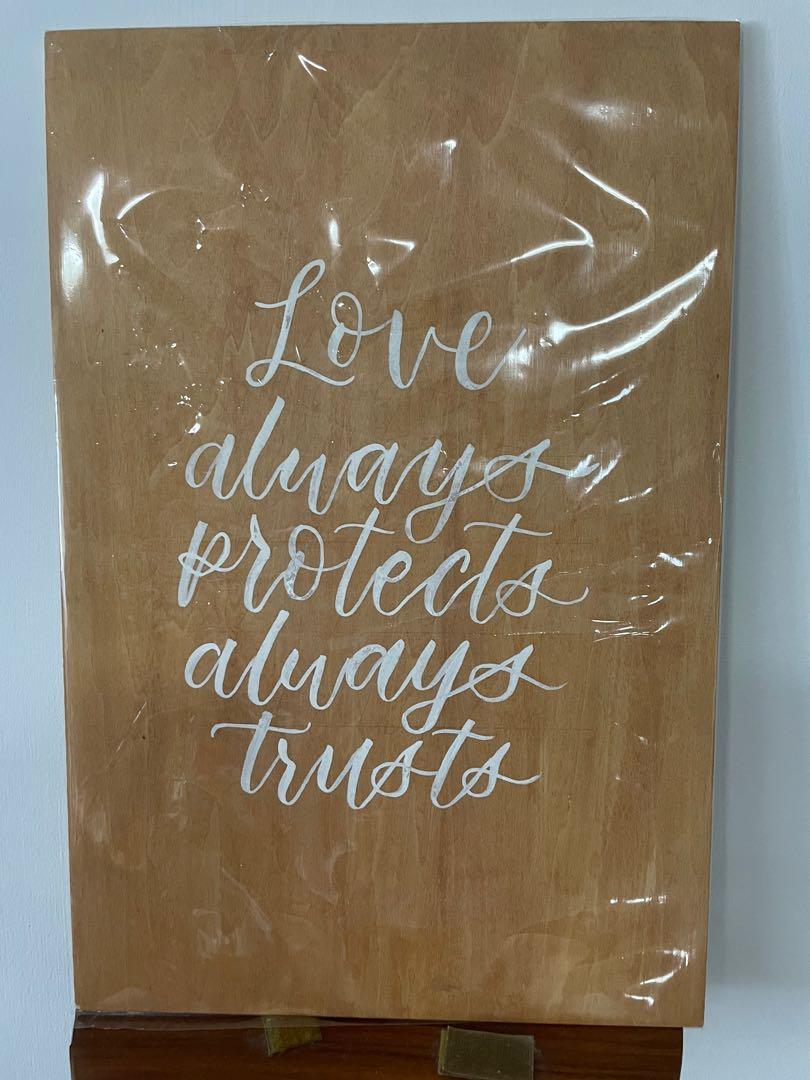 Love
always
protects
always
trusts